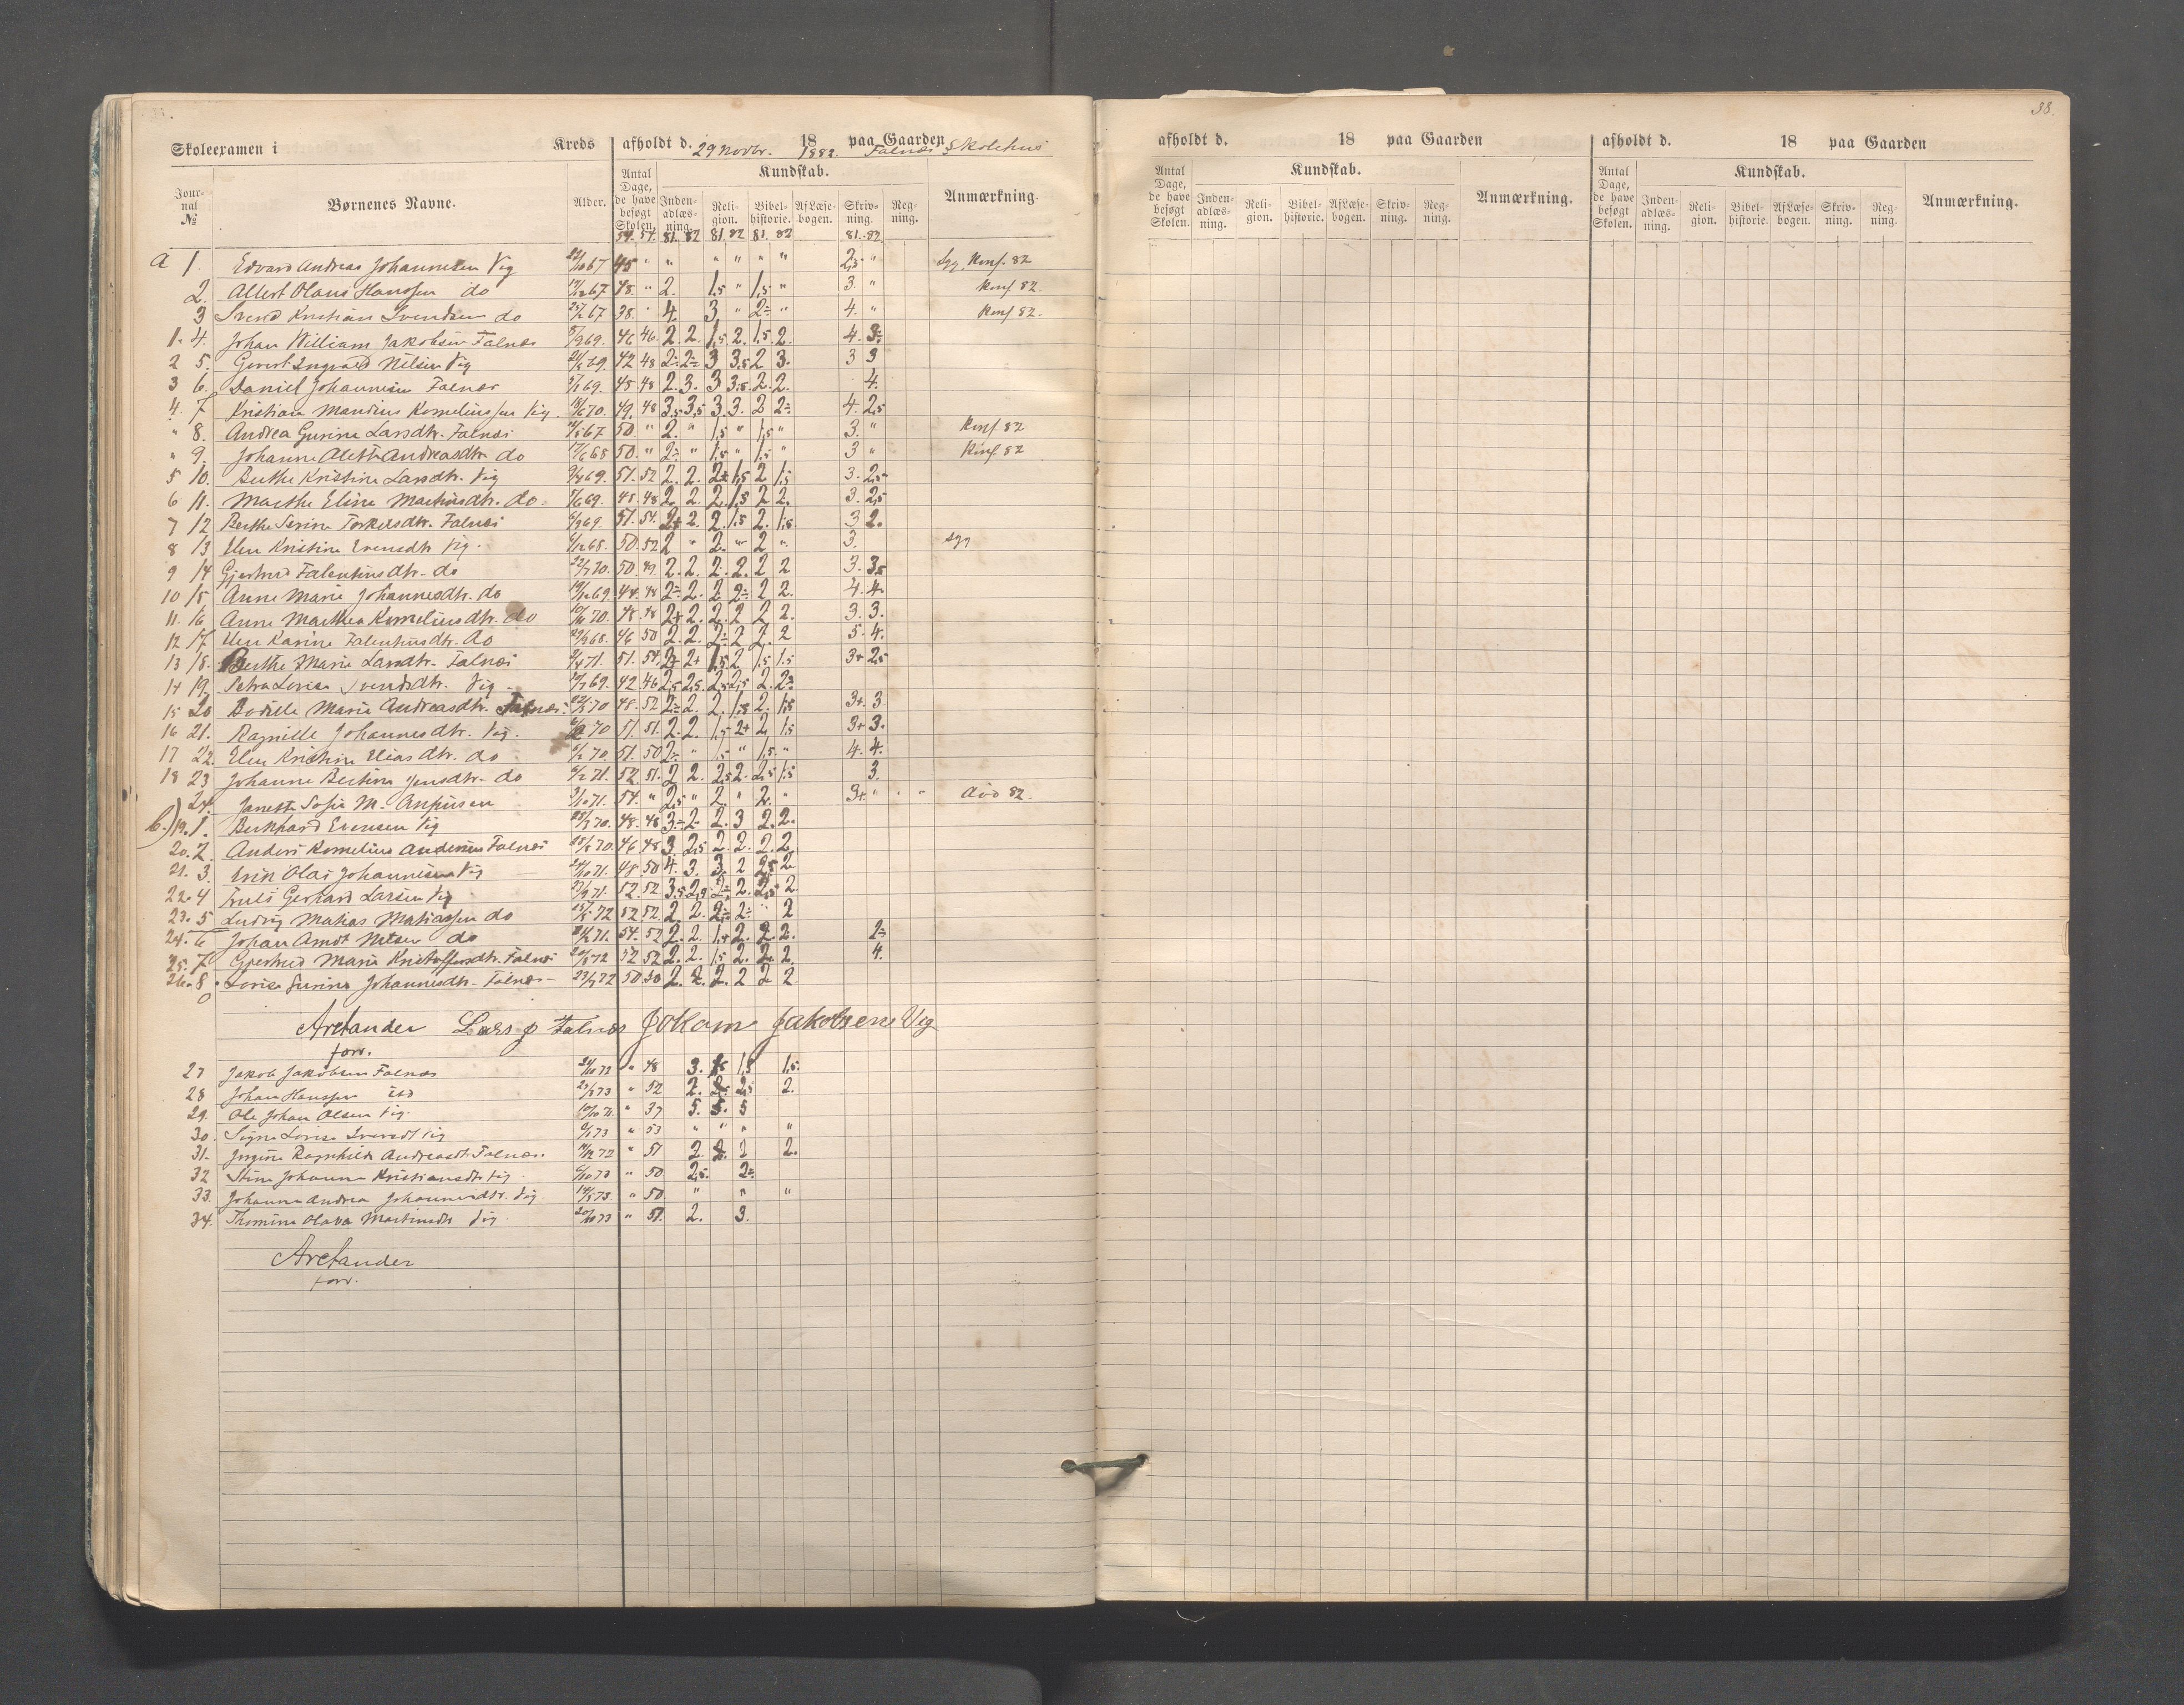 Skoleexamen i Kreds afholdt d. 29 Novbr. 1882. paa Gaarden Falnæs Skolehus
Journal № Børnenes Navne. Alder. Antal Dage, de have besøgt Skolen. Kundskab. Indenadlæsning. Religion. Bibelhistorie. Af Læsebogen. Skrivning. Regning. Anmærkning.
54. 54. 81. 82 81. 82 81. 82 81. 82.
a 1. Edvard Andreas Johannesen Vig 67 45 " " " " " " 2,5 " Syg, Konf. 82
2. Albert Olaus Hanssen do 67 48. " 2. 1,5 " 1,5 " 3. " Konf 82.
3 Svend Kristian Svendsen do 67 38. " 4. 3. " 2÷ " 4. " Konf 82.
1. 4. Johan William Jakobsen Falnæs 69. 46 46. 2. 2. 1,5 2. 1,5 2. 4. 3÷
2 5. Gevert Ingvald Nilsen Vig 69. 42 48 2÷ 2÷ 3 3,5 2 3. 3 3
3 6. Daniel Johannesen Falnæs 69. 45. 48 2. 3. 3 3,5 2. 2. 4.
4. 7 Kristian Mandius Kornelinssen Vig. 70. 49. 48 3,5 3,5 3. 3. 2 2÷ 4. 2,5
" 8. Andrea Gurine Larsdtr. Falnæs 67 50. " 2. " 1,5 " 1,5 " 3. " Konf 82
" 9. Johanne Alette Andreasdtr do 68 50. " 2÷ " 1,5 " 1,5 " 3 " Konf. 82
5 10. Berthe Kristine Larsdtr. Vig 69. 51. 52 2. 2. 2+ 1,5 2 1,5 3. 2,5
6 11. Marthe Eline Martinsdtr. do. 69. 48. 48 2. 2. 2. 1,5 2 2. 3. 2,5
7 12 Berthe Serine Torkelsdtr. Falnæs 69. 51. 54. 2+ 2. 2. 1,5 2. 1,5 3 2.
8 13 Elen Kristine Evensdtr Vig. 68. 50. 52 2 " 2. " 2 " 3. syg
9 14 Gjertrud Falentinsdtr. do 70. 50. 49. 2. 2. 2. 2. 2 2 3. 3,5
10 15 Anne Marie Johannesdtr. do 69. 44. 48 2÷ 2. 2. 2÷ 2 2. 4. 4.
11. 16 Anne Marthea Kornelius dtr. do 70. 48. 48 2+ 2. 2. 2 2 2. 3. 3.
12 17 Elen Karine Falentinsdtr. do 68. 46 50 2. 2. 2÷ 2 2. 2 5. 4.
13 18. Berthe Marie Larsdtr. Falnæs 71. 51. 54. 2+ 2+ 1,5 2 1,5 1,5 3+ 2,5
14 19. Petra Lovise Svendsdtr. Vig 69. 42 46 2,5 2,5. 2,5 2,5 2. 2÷
15 20 Bodille Marie Andreasdtr. Falnæs. 70 48. 52 2÷ 2. 2. 1,5 2. 1,5 3+. 3
16 21. Ragnille Johannesdtr. Vig. 70 51. 51. 2. 2. 1,5 2+ 2. 1,5 3+ 3.
17 22. Elen Kristine Elias dtr. do 70. 51. 50 2÷ " 1,5 " 1,5. " 4. 4.
18 23 Johanne Bertine Jensdtr. do 71. 52. 51. 2 2. 2,5 2. 2,5 1,5 3.
24. Janette Sofie M. 71. 54. " 2,5 " 2. " 2. " 3+ " " "
b.) 19. 1. Berkhard Evensen Vig 70. 48. 48 3÷ 2÷ 2. 3 2. 2.
20. 2. Anders Kornelius Andersen Falnæs 70. 46 48 3. 2,5 2. 2. 2. 2.
21. 3. Erik Olai Johannesen Vig 71. 48. 50 4. 3. 3. 2 2,5 2
22. 4 Truls Gerhard Larsen Vig 71. 52. 52 3,5 2,5 2÷ 2. 2,5 2.
23. 5 Ludvig Matias Matiassen do 72 52 52. 2. 2. 2÷ 2÷ " 2
24. 6 Johan Arndt Nilsen do 71. 54. 52 2. 2. 1,5 2. 2. 2. 2÷
25. 7 Gjertrud Marie Kristoffersdtr. Falnæs 72 52 52 2. 2. 1,5 2. 2. 2. 4.
26. 8. Lovise Gurine Johannesdtr. Falnæs 72 50 50 2. 2. 2. 2 2 2
Aretander Lars J Falnæs Johan Jakobsen Vig
forr.
27 Jakob Jakobsen Falnæs 72 " 48 3. 1,5 1,5 1,5.
28 Johan Hanssen ibd 73 " 52 2. 2. 2,5 2.
29. Ole Johan Olsen Vig. 71. " 37 5. 5. 5
30. Signe Lovise Vig 73 " 53 " " " "
31. Jngine Ragnhilde Andreasdt. Falnæs. 72 " 51 2. 2. 2 2.
32 Stine Johanna Kristiansdtr Vig 73 " 50 2,5. 2÷
33. Johanna Andrea Johannesdtr. Vig 73. " 50. " " "
34. Thomine Olava Martinsdtr Vig. 73 " 51. 2. 3.
Aretander
forr.
38.
afholdt d. 18 paa Gaarden
Antal Dage, de have besøgt Skolen. Kundskab. Indenadlæsning. Religion. Bibelhistorie. Af Læsebogen. Skrivning. Regning. Anmærkning.
afholdt d. 18 paa Gaarden
Antal Dage, de have besøgt Skolen. Kundskab. Indenadlæsning. Religion. Bibelhistorie. Af Læsebogen. Skrivning. Regning. Anmærkning.